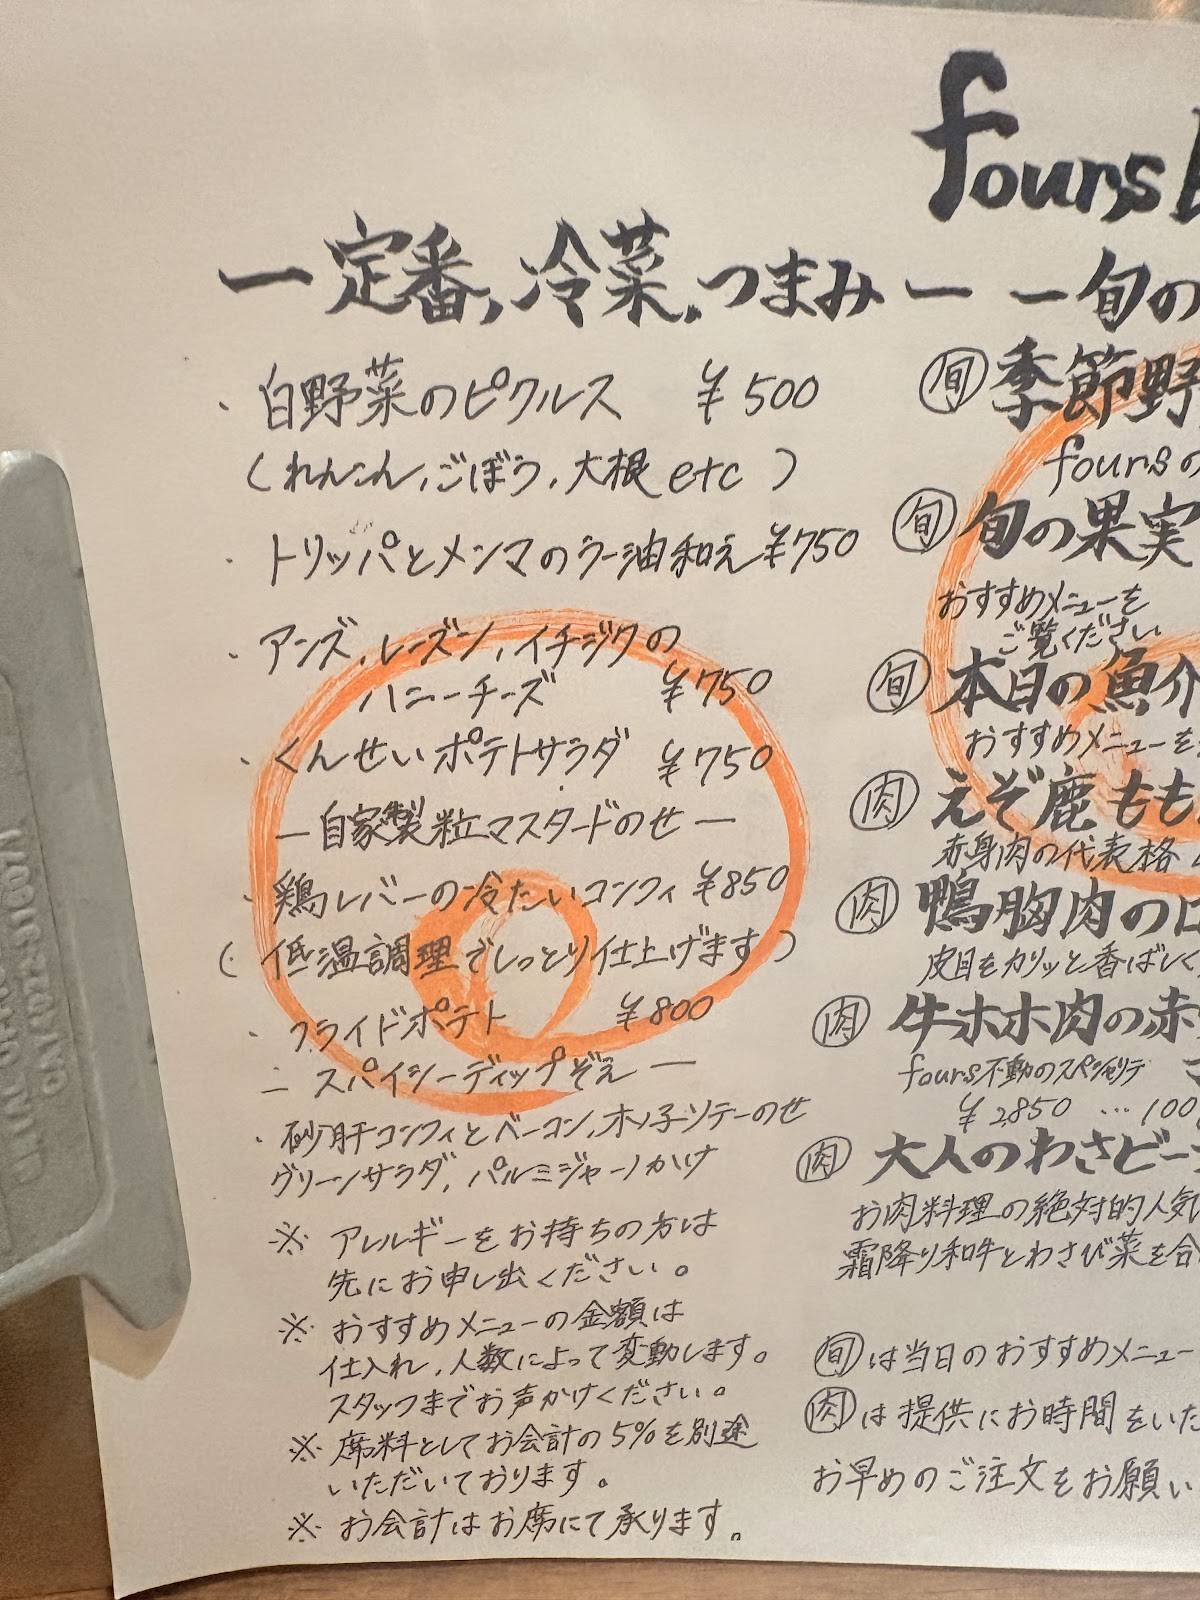 fours
ー定番,冷菜,つまみー
・白野菜のピクルス ¥500
(れんこん,ごぼう,大根etc)
・トリッパとメンマのラー油和え ¥750
・アンズ,レーズン,イチジクの
ハニーチーズ ¥750
・くんせいポテトサラダ ¥750
ー自家製粒マスタードのせー
・鶏レバーの冷たいコンフィ ¥850
(低温調理でしっとり仕上げます)
・フライドポテト ¥800
ースパイシーディップぞえー
・砂肝コンフィとベーコン,木ノ子ソテーのせ
グリーンサラダ,パルミジャーノかけ
※アレルギーをお持ちの方は
先にお申し出ください。
※おすすめメニューの金額は
仕入れ,人数によって変動します。
スタッフまでお声かけください。
※席料としてお会計の5%を別途
いただいております。
※お会計はお席にて承ります。
ー旬の
旬 季節野
foursの
旬 旬の果実
おすすめメニューを
ご覧ください
旬 本日の魚介
おすすめメニューを
肉 えぞ鹿もも
赤身肉の代表格
肉 鴨胸肉のロ
皮目をカリッと香ばしく
肉 牛ホホ肉の赤
fours不動のスペシャリテ
¥2,850 …100
肉 大人のわさビー
お肉料理の絶対的人気
霜降り和牛とわさび菜を合
旬は当日のおすすめメニュー
肉は提供にお時間をいた
お早めのご注文をお願い